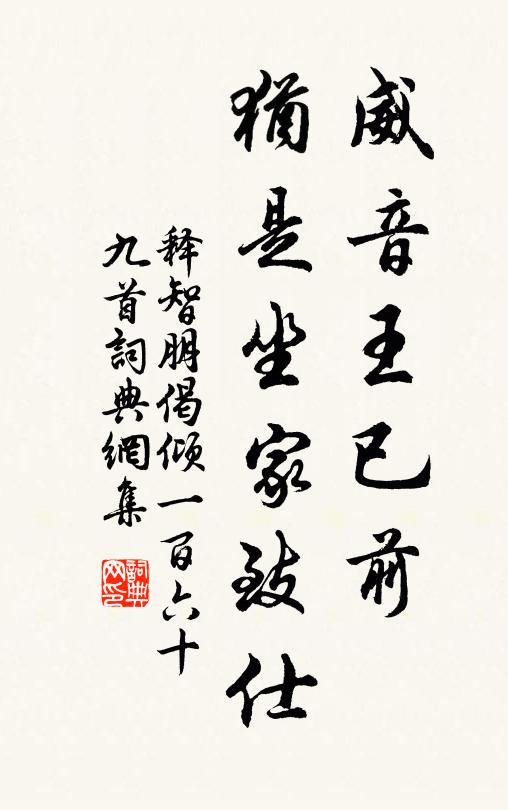 威音王已前
猶是坐家致仕
释智朋偈倾一百六十
九首詞典網集
詞典网印